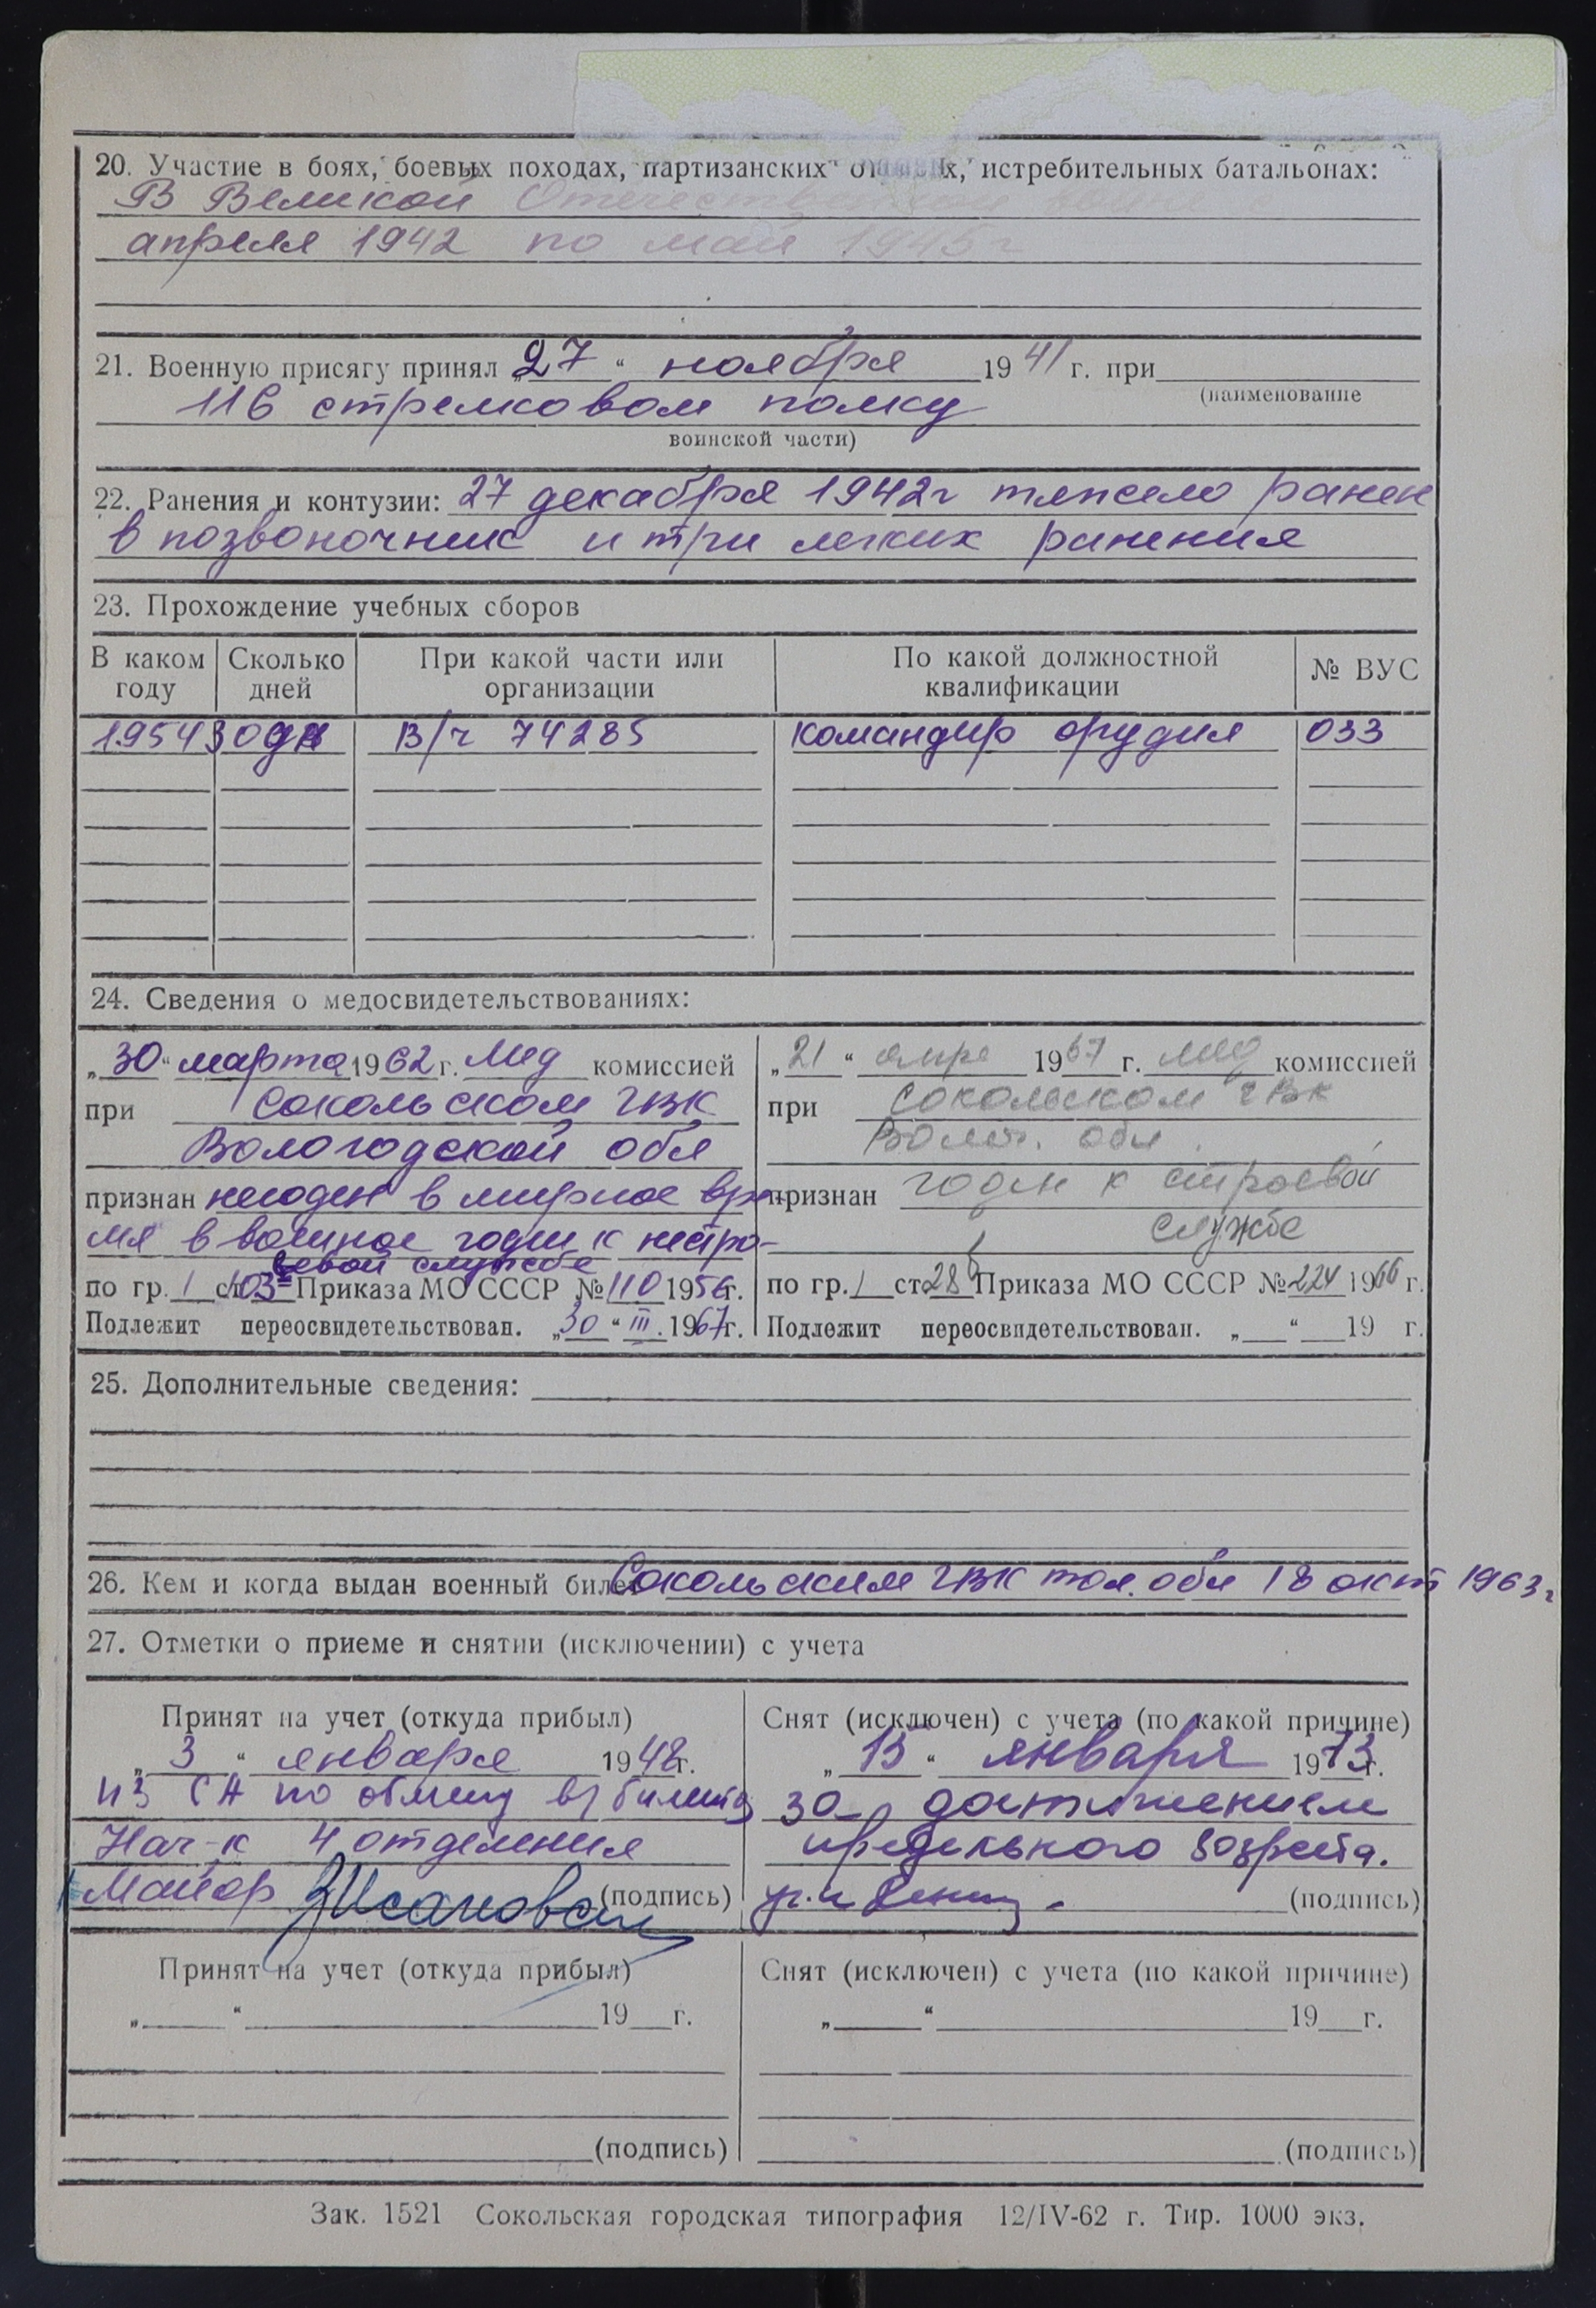 20. Участие в боях, боевых походах, партизанских истребительных батальонах:
В Великой Отечест
апреля 1942 по май 1945г
21. Военную присягу принял „27“ ноября 1941 г. при
(наименование
116 стрелковом полку
воинской части)
22. Ранения и контузии: 27 декабря 1942г тяжело ранен
в позвоночник и три легких ранения
23. Прохождение учебных сборов
В каком году Сколько дней При какой части или организации По какой должностной квалификации № ВУС
1954 30дн В/ч 74285 командир орудия 033
24. Сведения о медосвидетельствованиях:
„30“ марта 1962 г. Мед комиссией
при Сокольском ГВК
Вологодской обл
признан негоден в мирное вре-
мя в военное годен к нестро-
евой службе
по гр. 1 ст. 103 Приказа МО СССР № 110 1956г.
Подлежит переосвидетельствован. „30“ III. 1967г.
„21“ апре 1967 г. мед комиссией
при Сокольском ГВК
Волог. обл.
признан годен к строевой
службе
по гр. 1 ст. 28б Приказа МО СССР № 224 1966 г.
Подлежит переосвидетельствован. „ “ 19 г.
25. Дополнительные сведения:
26. Кем и когда выдан военный билет Сокольским ГВК обл 18 окт 1963г
27. Отметки о приеме и снятии (исключении) с учета
Принят на учет (откуда прибыл)
„3“ января 1948г.
из СА по обмену в/билета
Нач-к 4 отделения
Майор (подпись)
Снят (исключен) с учета (по какой причине)
„15“ января 1973г.
за достижением
предельного возраста.
(подпись)
Принят на учет (откуда прибыл)
„ “ 19 г.
(подпись)
Снят (исключен) с учета (по какой причине)
„ “ 19 г.
(подпись)
Зак. 1521 Сокольская городская типография 12/IV-62 г. Тир. 1000 экз.